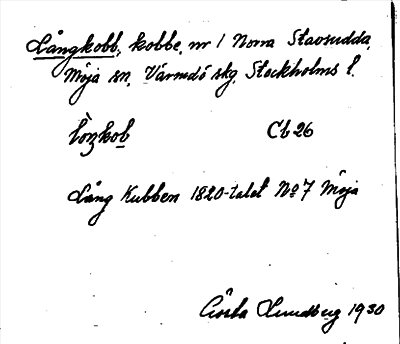 Långkobb, kobbe, nr 1 Norra Stavsudda,
Möja sn, Värmdö skg, Stockholms l.
lòŋkob Cb 26
Lång Kubben 1820-talet No 7 Möja
Gösta Lundberg 1930